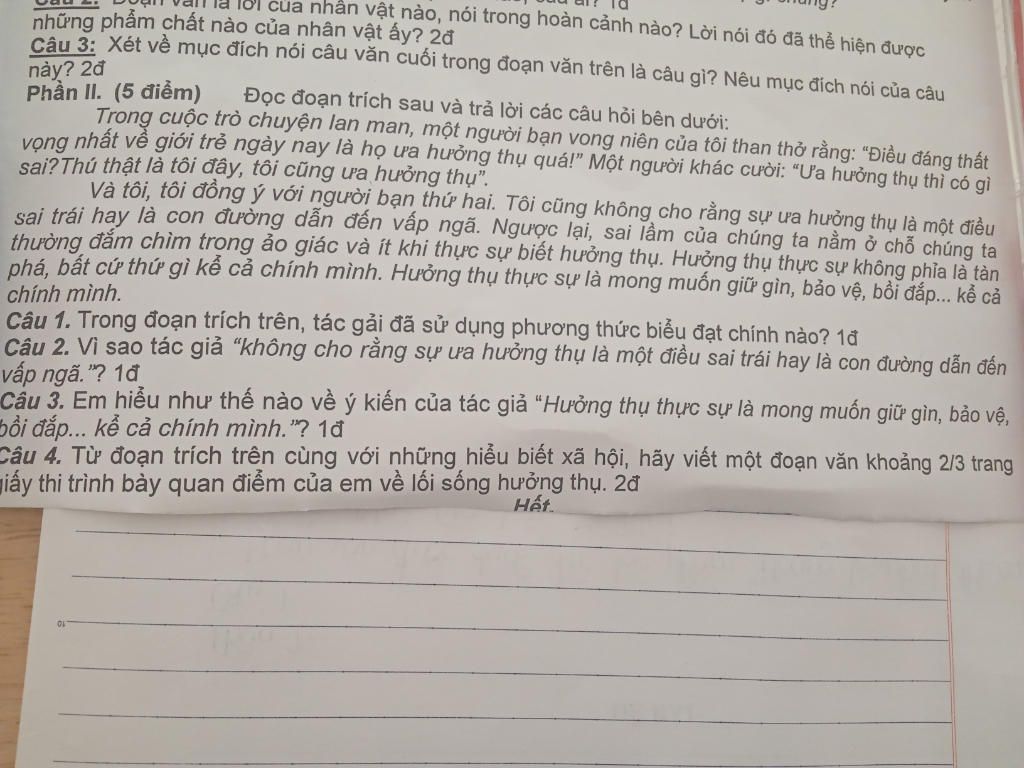 Câu 2: Đoạn văn là lời của nhân vật nào, nói trong hoàn cảnh nào? Lời nói đó đã thể hiện được
những phẩm chất nào của nhân vật ấy? 2đ
Câu 3: Xét về mục đích nói câu văn cuối trong đoạn văn trên là câu gì? Nêu mục đích nói của câu
này? 2đ
Phần II. (5 điểm) Đọc đoạn trích sau và trả lời các câu hỏi bên dưới:
Trong cuộc trò chuyện lan man, một người bạn vong niên của tôi than thở rằng: “Điều đáng thất
vọng nhất về giới trẻ ngày nay là họ ưa hưởng thụ quá!” Một người khác cười: “Ưa hưởng thụ thì có gì
sai?Thú thật là tôi đây, tôi cũng ưa hưởng thụ”.
Và tôi, tôi đồng ý với người bạn thứ hai. Tôi cũng không cho rằng sự ưa hưởng thụ là một điều
sai trái hay là con đường dẫn đến vấp ngã. Ngược lại, sai lầm của chúng ta nằm ở chỗ chúng ta
thường đắm chìm trong ảo giác và ít khi thực sự biết hưởng thụ. Hưởng thụ thực sự không phìa là tàn
phá, bất cứ thứ gì kể cả chính mình. Hưởng thụ thực sự là mong muốn giữ gìn, bảo vệ, bồi đắp... kể cả
chính mình.
Câu 1. Trong đoạn trích trên, tác gải đã sử dụng phương thức biểu đạt chính nào? 1đ
Câu 2. Vì sao tác giả “không cho rằng sự ưa hưởng thụ là một điều sai trái hay là con đường dẫn đến
vấp ngã.”? 1đ
Câu 3. Em hiểu như thế nào về ý kiến của tác giả “Hưởng thụ thực sự là mong muốn giữ gìn, bảo vệ,
bồi đắp... kể cả chính mình.”? 1đ
Câu 4. Từ đoạn trích trên cùng với những hiểu biết xã hội, hãy viết một đoạn văn khoảng 2/3 trang
giấy thi trình bày quan điểm của em về lối sống hưởng thụ. 2đ
Hết.
10